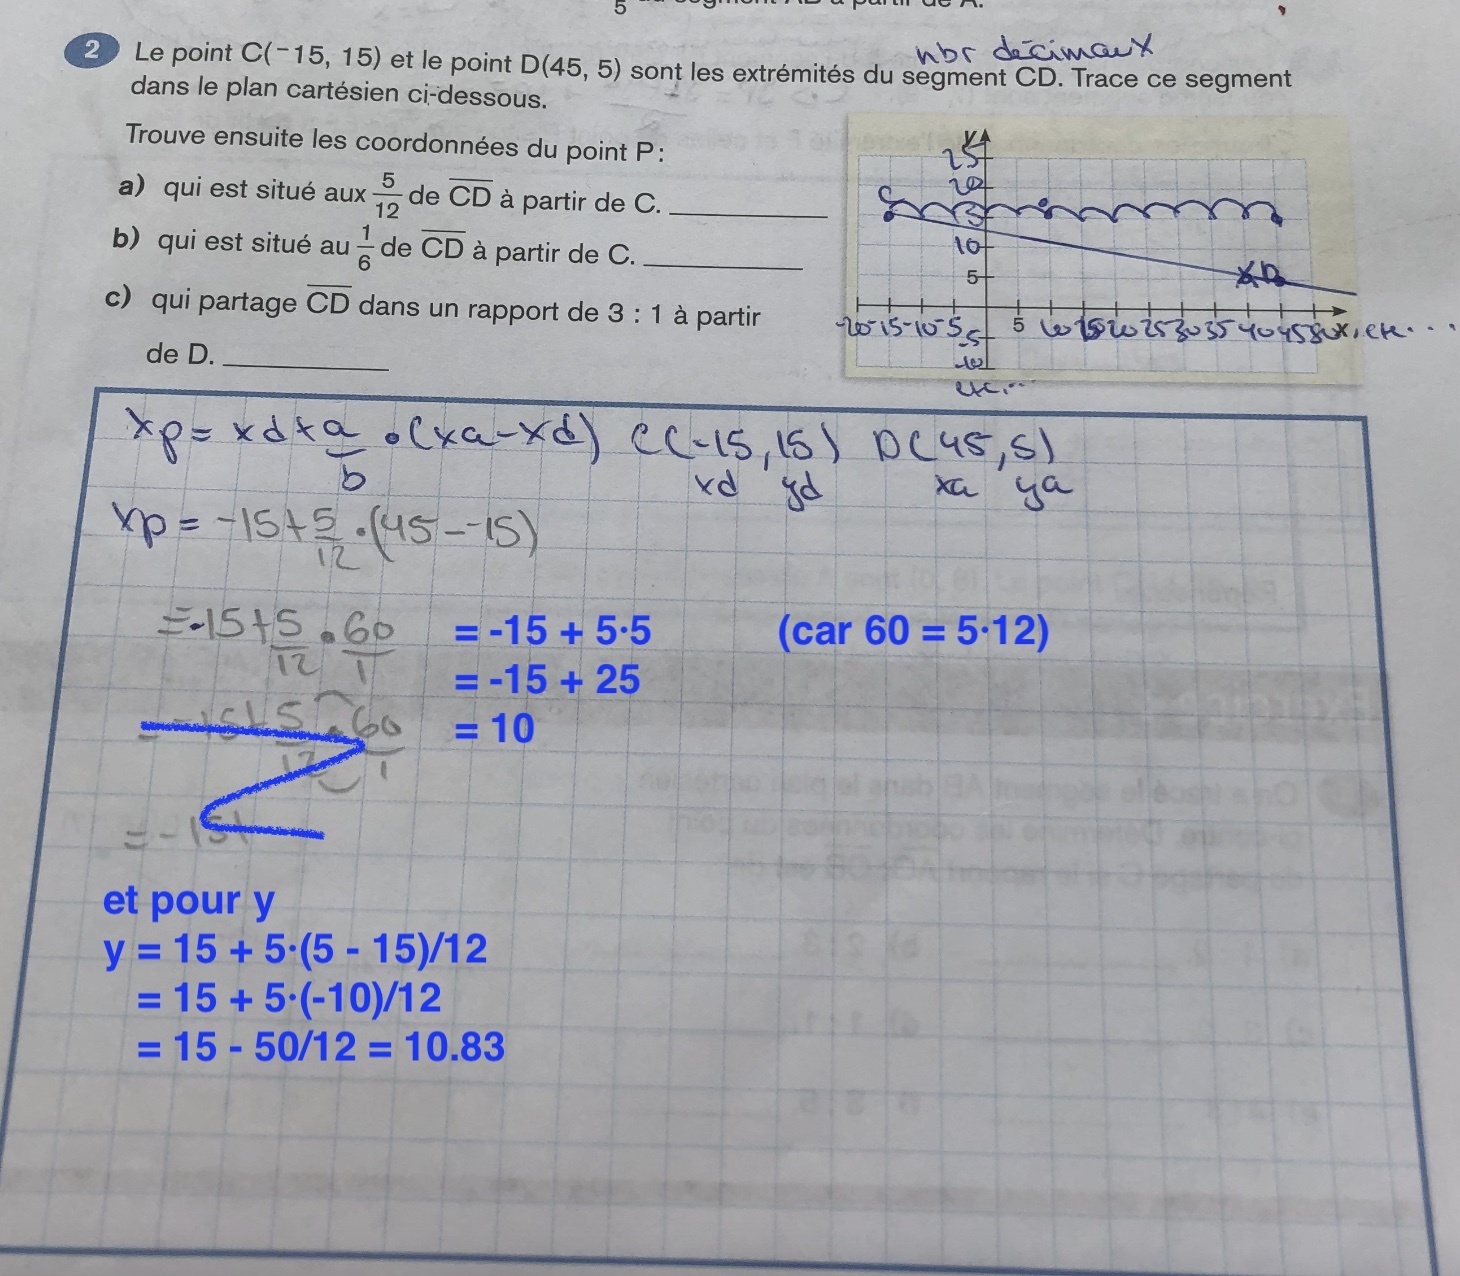 5
2 Le point C(⁻15, 15) et le point D(45, 5) sont les extrémités du segment CD. Trace ce segment
nbr décimaux
dans le plan cartésien ci-dessous.
Trouve ensuite les coordonnées du point P :
a) qui est situé aux 5/12 de CD à partir de C.
b) qui est situé au 1/6 de CD à partir de C.
c) qui partage CD dans un rapport de 3 : 1 à partir
de D.
y
25
20
15
10
5
-20 -15 -10 -5 5 10 15 20 25 30 35 40 45 50 x, etc...
-5
-10
etc...
C
D
xp = xd + a/b • (xa - xd) C(-15, 15) D(45, 5)
xd yd xa ya
xp = -15 + 5/12 • (45 - -15)
= -15 + 5/12 • 60/1 = -15 + 5·5 (car 60 = 5·12)
= -15 + 25
= -15 + 5/12 • 60/1 = 10
= -15+
et pour y
y = 15 + 5·(5 - 15)/12
= 15 + 5·(-10)/12
= 15 - 50/12 = 10.83